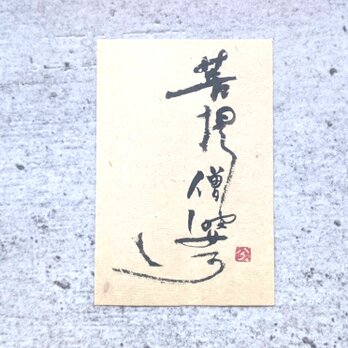 菩提僧婆訶